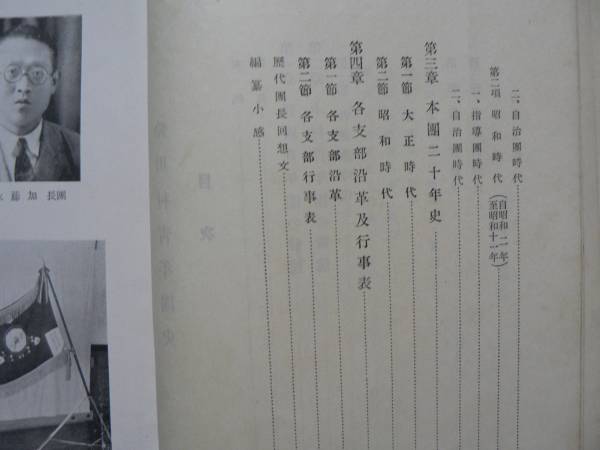 二、自治團時代
第二項 昭和時代(自昭和二年至昭和十一年)
一、指導團時代
二、自治團時代
第三章 本團二十年史
第一節 大正時代
第二節 昭和時代
第四章 各支部沿革及行事表
第一節 各支部沿革
第二節 各支部行事表
歷代團長回想文
編纂小感
目次
團長 加藤